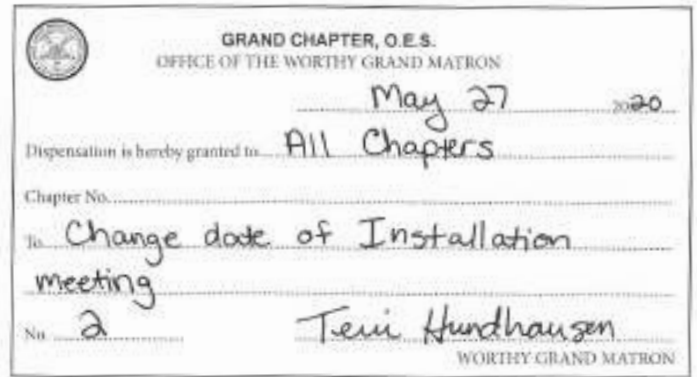 GRAND CHAPTER, O.E.S.
OFFICE OF THE WORTHY GRAND MATRON
May 27 2020
Dispensation is hereby granted to All Chapters
Chapter No.
To Change date of Installation
meeting
No. 2 Teri Hundhausen
WORTHY GRAND MATRON